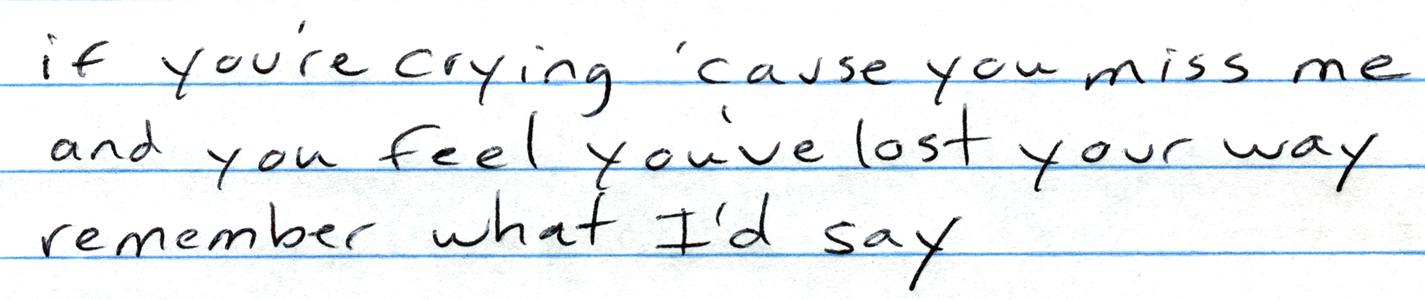 if you're crying 'cause you miss me
and you feel you've lost your way
remember what I'd say